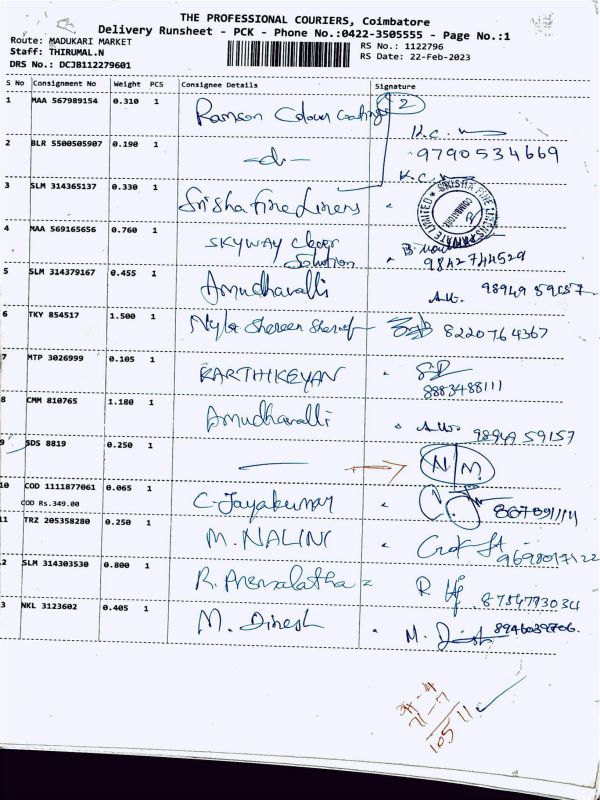 THE PROFESSIONAL COURIERS, Coimbatore
Delivery Runsheet - PCK - Phone No.:0422-3505555 - Page No.:1
Route: MADUKARI MARKET
Staff: THIRUMAL.N
DRS No.: DCJB112279601
RS No.: 1122796
RS Date: 22-Feb-2023
S No Consignment No Weight PCS Consignee Details Signature
1 MAA 567989154 0.310 1 Ramson Colour Coatings 2
K.C.
2 BLR 5500505907 0.190 1 -do- 9790534669
K.C.
3 SLM 314365137 0.330 1 Srisha Fine Liners
4 MAA 569165656 0.760 1 SKYWAY Clear Solution
9842744529
5 SLM 314379167 0.455 1 Amudhavalli
6 TKY 854517 1.500 1 Nyla Shereen Sherief 8220764367
7 MTP 3026999 0.105 1 KARTHIKEYAN
8883488111
8 CMM 810765 1.180 1 Amudhavalli 98949 59157
9 SDS 8819 0.250 1 N/M
10 COD 1111877061 0.065 1 C. Jayakumar
COD Rs.349.00
11 TRZ 205358280 0.250 1 M. NALINI
2 SLM 314303530 0.800 1 R. 8754773034
3 NKL 3123602 0.405 1 M. Dinesh M. 8946039706.
105 11